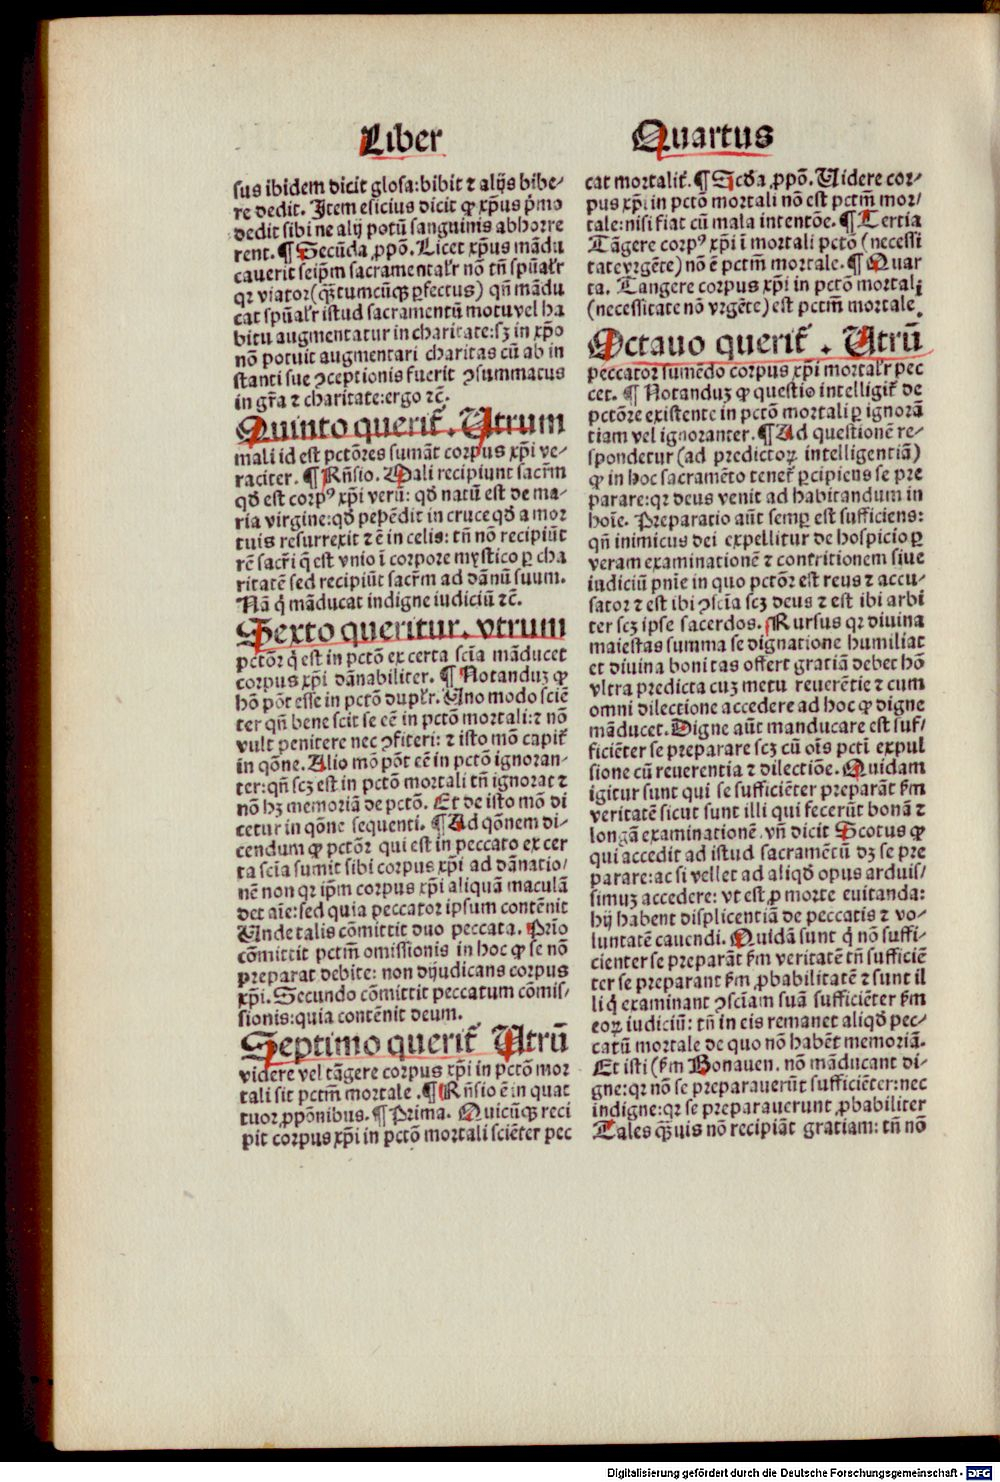 Liber
Quartus
sus ibidem dicit glosa:bibit ⁊ alijs bibe-
re dedit. Item esicius dicit ꝙ xp̄us p̄mo
dedit sibi ne alij potū sanguinis abhorre
rent. ¶ Secūda ꝓpō. Licet xp̄us mādu
cauerit seip̄m sacramentalr̄ nō tn̄ spūalr̄
qꝛ viator(qͣꝫtumcūqꝫ ꝑfectus) qn̄ mādu
cat spūalr̄ istud sacramentū motu vel ha
bitu augmentatur in charitate:sꝫ in xp̄o
nō potuit augmentari charitas cū ab in
stanti sue ꝯceptionis fuerit ꝯsummatus
in gr̄a ⁊ charitate:ergo ⁊c̄.
Quinto querit̄. Utrum
mali id est pctōres sumāt corpus xp̄i ve-
raciter. ¶ Rn̄sio. Mali recipiunt sacr̄m
qd̄ est corpꝰ xp̄i verū: qd̄ natū est de ma-
ria virgine:qd̄ pepēdit in cruce qd̄ a mor
tuis resurrexit ⁊ ē in celis: tn̄ nō recipiūt
rē sacr̄i q̄ est vnio ī corpore mystico ꝑ cha
ritatē sed recipiūt sacr̄m ad dānū suum.
Nā q̇ māducat indigne iudiciū ⁊c̄.
Sexto queritur. vtrum
pctōꝛ q̇ est in pctō ex certa scīa māducet
corpus xp̄i dānabiliter. ¶ Notanduꝫ ꝙ
hō pōt esse in pctō duplr̄. Uno modo sciē
ter qn̄ bene scit se eē in pctō mortali:⁊ nō
vult penitere nec ꝯfiteri: ⁊ isto mō capit̄
in qōne. Alio mō pōt eē in pctō ignoran-
ter:qn̄ scꝫ est in pctō mortali tn̄ ignorat ⁊
nō hꝫ memoriā de pctō. Et de isto mō di
cetur in qōne sequenti. ¶ Ad qōnem di-
cendum ꝙ pctōꝛ qui est in peccato ex cer
ta scīa sumit sibi corpus xp̄i ad dānatio-
nē non qꝛ ip̄m corpus xp̄i aliquā maculā
det aīe:sed quia peccator ipsum contēnit
Unde talis cōmittit duo peccata. Prīo
cōmittit pctm̄ omissionis in hoc ꝙ se nō
preparat debite: non dijudicans corpus
xp̄i. Secundo cōmittit peccatum cōmis-
sionis:quia contēnit deum.
Septimo querit̄ Utrū
videre vel tāgere corpus xp̄i in pctō mor
tali sit pctm̄ mortale. ¶ Rn̄sio ē in quat
tuor ꝓpōnibus. ¶ Prima. Quicūqꝫ reci
pit corpus xp̄i in pctō mortali sciēter pec
cat mortalit̄. ¶ Scd̄a ꝓpō. Uidere cor-
pus xp̄i in pctō mortali nō est pctm̄ mor-
tale:nisi fiat cū mala intentōe. ¶ Tertia
Tāgere corpꝰ xp̄i ī mortali pctō (necessi
tate vrgēte) nō ē pctm̄ mortale. ¶ Quar
ta. Tangere corpus xp̄i in pctō mortali
(necessitate nō vrgēte) est pctm̄ mortale.
Octauo querit̄. Utrū
peccator sumēdo corpus xp̄i mortalr̄ pec
cet. ¶ Notanduꝫ ꝙ questio intelligit̄ de
pctōre existente in pctō mortali ꝑ ignorā
tiam vel ignoranter. ¶ Ad questionē re-
spondetur (ad predictoꝝ intelligentiā)
ꝙ in hoc sacramēto tenet̄ ꝑcipiens se pre
parare:qꝛ deus venit ad habitandum in
hoīe. Preparatio aūt semꝑ est sufficiens:
qn̄ inimicus dei expellitur de hospicio ꝑ
veram examinationē ⁊ contritionem siue
iudiciū pn̄ie in quo pctōꝛ est reus ⁊ accu-
sator ⁊ est ibi ꝯscīa scꝫ deus ⁊ est ibi arbi
ter scꝫ ipse sacerdos. Rursus qꝛ diuina
maiestas summa se dignatione humiliat
et diuina bonitas offert gratiā debet hō
vltra predicta cuꝫ metu reuerētie ⁊ cum
omni dilectione accedere ad hoc ꝙ digne
māducet. Digne aūt manducare est suf-
ficiēter se preparare scꝫ cū oīs pcti expul
sione cū reuerentia ⁊ dilectiōe. Quidam
igitur sunt qui se sufficiēter preparāt ẜm
veritatē sicut sunt illi qui fecerūt bonā ⁊
longā examinationē. vn̄ dicit Scotus ꝙ
qui accedit ad istud sacramētū dꝫ se pre
parare:ac si vellet ad aliqd̄ opus arduis-
simuꝫ accedere: vt est ꝓ morte euitanda:
hij habent displicentiā de peccatis ⁊ vo-
luntatē cauendi. Quidā sunt q̇ nō suffi-
cienter se preparāt ẜm veritatē tn̄ sufficiē
ter se preparant ẜm ꝓbabilitatē ⁊ sunt il
li q̇ examinant ꝯscīam suā sufficiēter ẜm
eoꝝ iudiciū: tn̄ in eis remanet aliqd̄ pec-
catū mortale de quo nō habēt memoriā.
Et isti (ẜm Bonauen. nō māducant di-
gne:qꝛ nō se preparauerūt sufficiēter:nec
indigne:qꝛ se preparauerunt ꝓbabiliter
Tales qͣꝫuis nō recipiāt gratiam: tn̄ nō
Digitalisierung gefördert durch die Deutsche Forschungsgemeinschaft - DFG